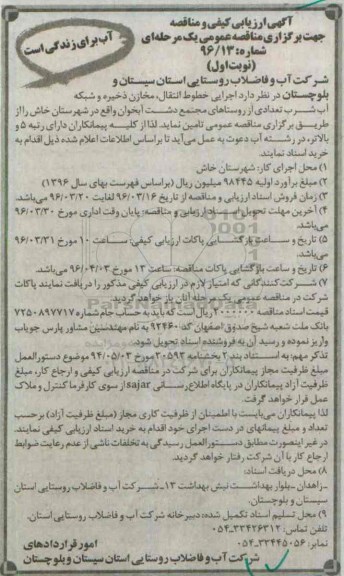 آب برای زندگی است
آگهی ارزیابی کیفی و مناقصه
جهت برگزاری مناقصه عمومی یک مرحله‌ای
شماره: ۹۶/۱۳
(نوبت اول)
شرکت آب و فاضلاب روستایی استان سیستان و
بلوچستان در نظر دارد اجرایی خطوط انتقال، مخازن ذخیره و شبکه
آب شرب تعدادی از روستاهای مجتمع دشت آبخوان واقع در شهرستان خاش را از
طریق برگزاری مناقصه عمومی تامین نماید. لذا از کلیه پیمانکاران دارای رتبه ۵ و
بالاتر، در رشته آب دعوت به عمل می‌آید تا براساس اطلاعات اعلام شده ذیل اقدام به
خرید اسناد نمایند.
۱) محل اجرای کار: شهرستان خاش
۲) مبلغ برآورد اولیه ۹۸۴۴۵ میلیون ریال (براساس فهرست بهای سال ۱۳۹۶)
۳) زمان فروش اسناد ارزیابی و مناقصه از تاریخ ۹۶/۰۳/۱۶ لغایت ۹۶/۰۳/۲۰ می‌باشد.
۴) آخرین مهلت تحویل اسناد ارزیابی و مناقصه: پایان وقت اداری مورخ ۹۶/۰۳/۳۰
می‌باشد.
۵) تاریخ و ساعت بازگشایی پاکات ارزیابی کیفی: ساعت ۱۰ مورخ ۹۶/۰۳/۳۱
می‌باشد.
۶) تاریخ و ساعت بازگشایی پاکات مناقصه: ساعت ۱۲ مورخ ۹۶/۰۴/۰۳ می‌باشد.
۷) شرکت‌کنندگانی که امتیاز لازم در ارزیابی کیفی مذکور را دریافت نمایند پاکات
شرکت در مناقصه عمومی یک مرحله آنان باز خواهد گردید.
قیمت اسناد مناقصه ۲۰۰۰۰۰۰ ریال است که باید به حساب جام شماره ۷۲۵۰۸۹۷۷۱۷
بانک ملت شعبه شیخ صدوق اصفهان کد ۹۲۴۶۰ به نام مهندسین مشاور پارس جویاب
واریز نموده و رسید آن به فروشنده اسناد تحویل شود.
تذکر مهم: به استناد بند ۲ بخشنامه ۲۰۵۹۳ مورخ ۹۴/۰۵/۰۳ موضوع دستورالعمل
مبلغ ظرفیت مجاز پیمانکاران برای شرکت در مناقصه ارزیابی کیفی و ارجاع کار، مبلغ
ظرفیت آزاد پیمانکاران در پایگاه اطلاع‌رسانی sajar از سوی کارفرما کنترل و ملاک
عمل قرار خواهد گرفت.
لذا پیمانکاران می‌بایست با اطمینان از ظرفیت کاری مجاز (مبلغ ظرفیت آزاد) برحسب
تعداد و مبلغ پیمانهای در دست اجرای خود اقدام به خرید اسناد ارزیابی کیفی نمایند.
در غیر اینصورت مطابق دستورالعمل رسیدگی به تخلفات ناشی از عدم رعایت ضوابط
ارجاع کار با آن شرکت رفتار خواهد گردید.
۸) محل دریافت اسناد:
-زاهدان -بلوار بهداشت نبش بهداشت ۱۳ـ شرکت آب و فاضلاب روستایی استان
سیستان و بلوچستان.
۹) محل تسلیم اسناد تکمیل شده: دبیرخانه شرکت آب و فاضلاب روستایی استان.
تلفن تماس: ۳۳۴۲۶۳۱۲-۰۵۴
نمابر تماس: ۳۳۴۴۵۰۵۶-۰۵۴
امور قراردادهای
شرکت آب و فاضلاب روستایی استان سیستان و بلوچستان